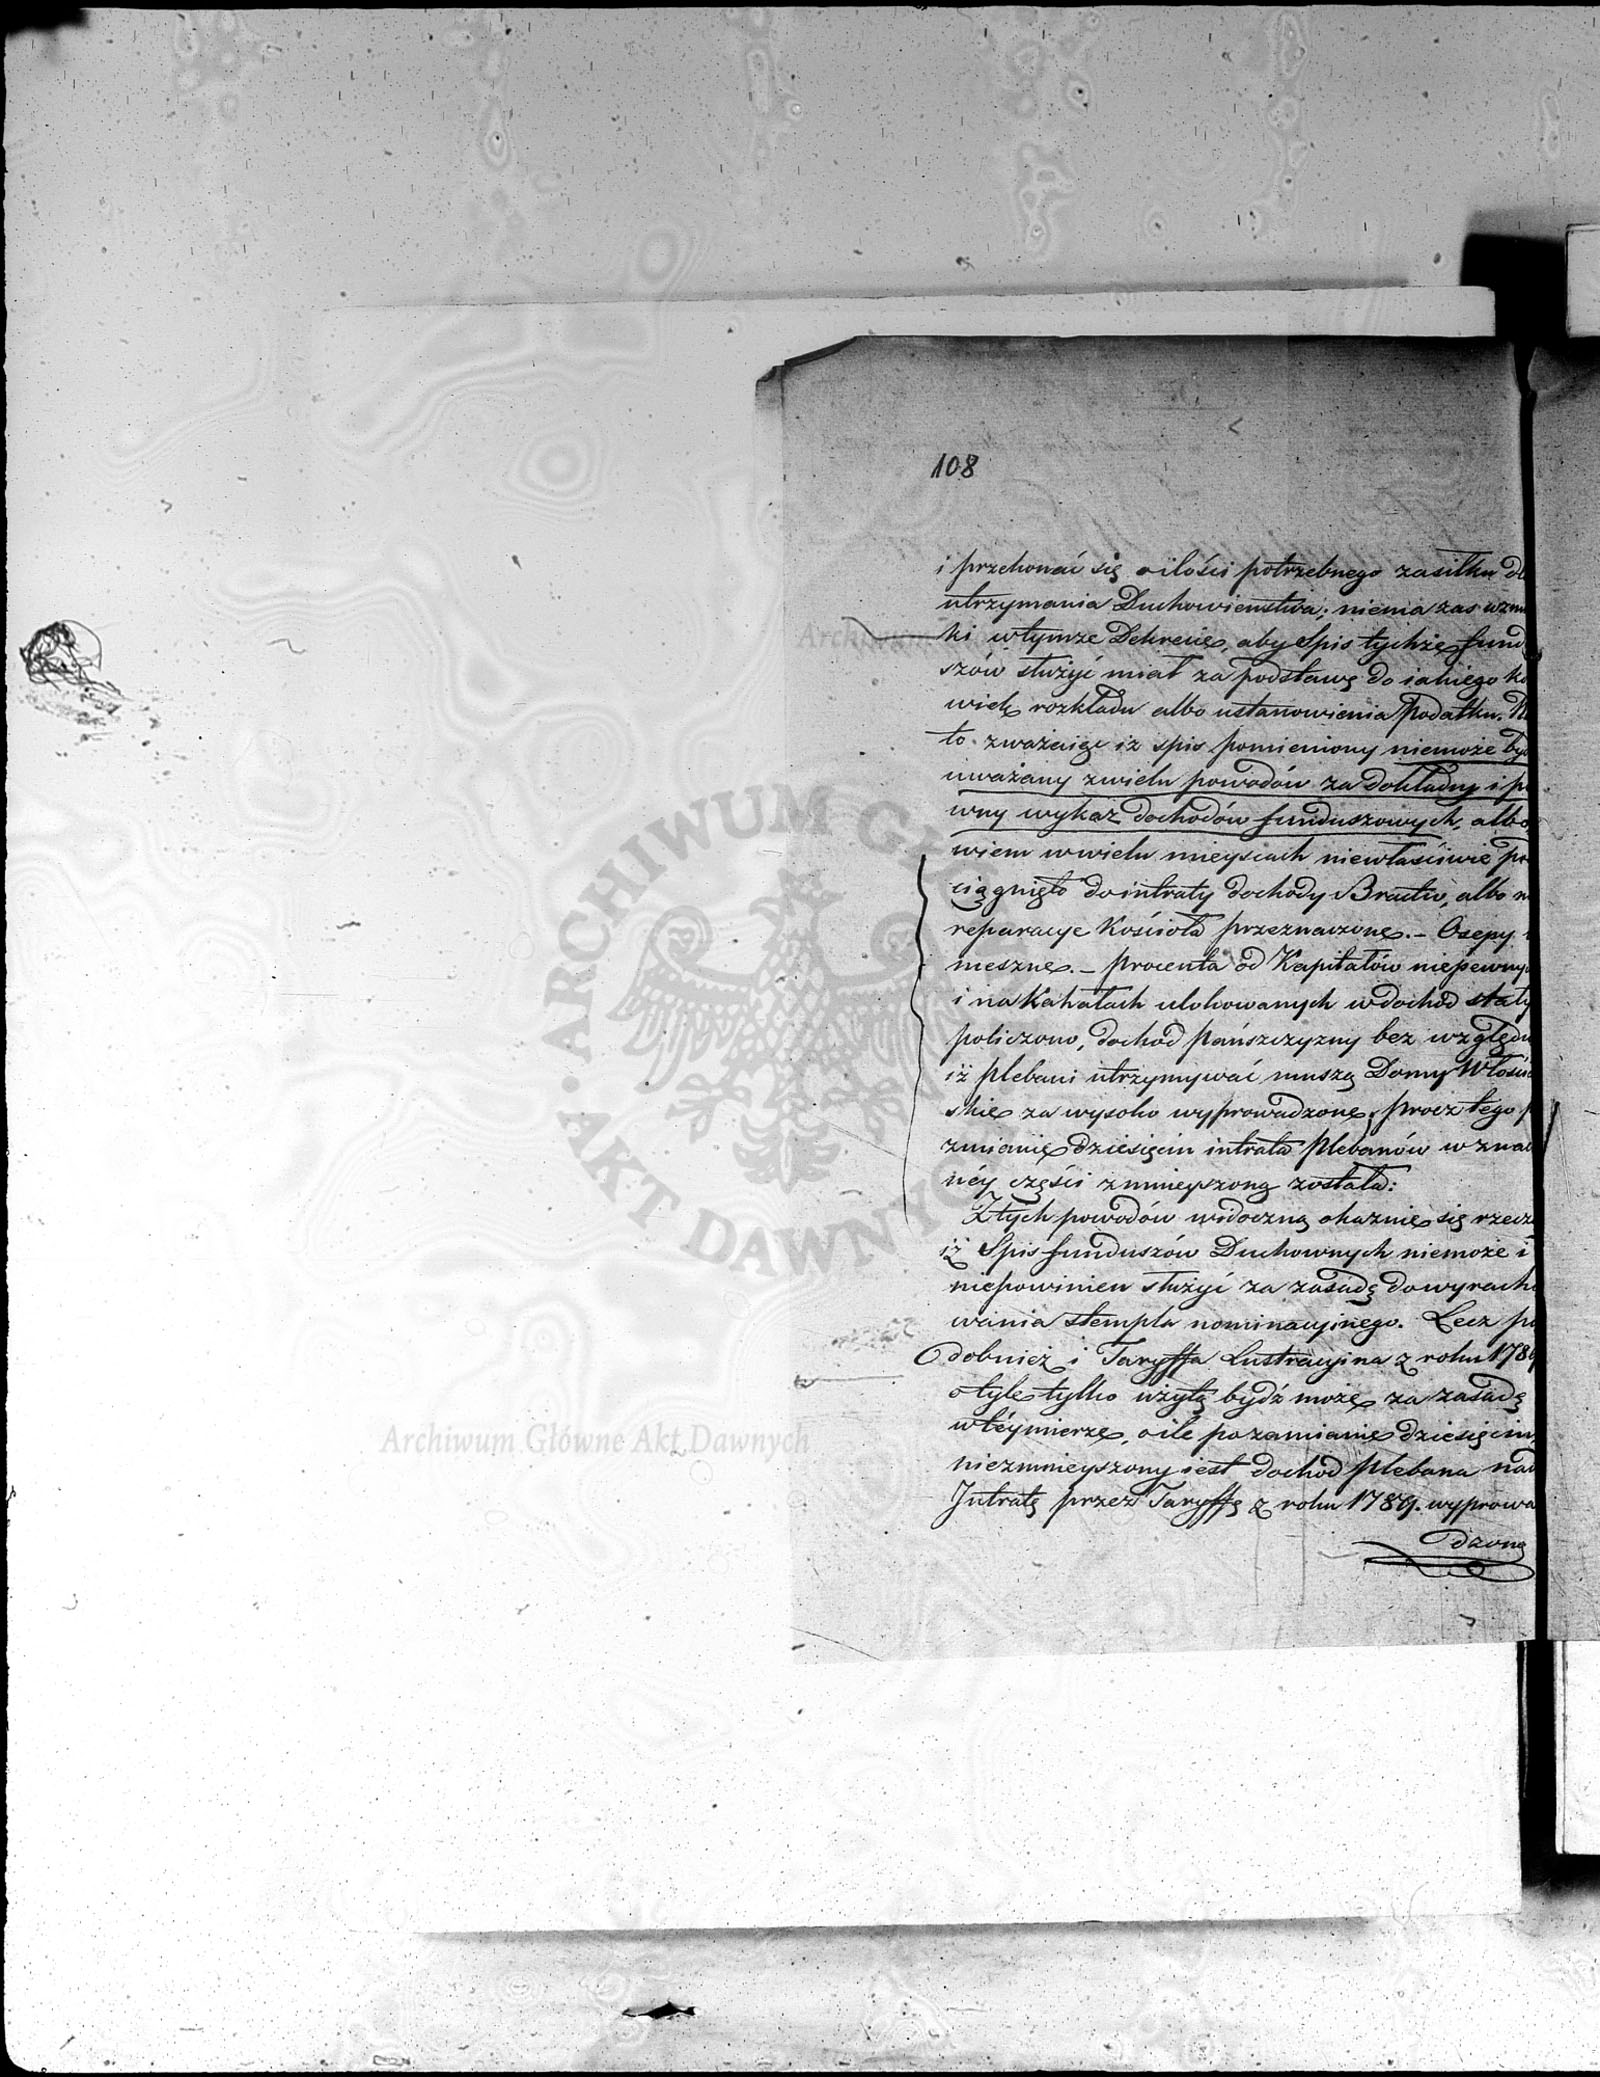 108
i przekonać się o ilości potrzebnego zasiłku dl
utrzymania Duchowieństwa; niema zas wzm
ki w tymże Dekrecie, aby Spis tychże fund
szów służyć miał za podstawę do iakiego ko
wiek rozkładu albo ustanowienia podatku.
to zważaiąc iż spis pomieniony niemoże być
uważany zwielu powodów za dokładny i p
wny wykaz dochodów funduszowych, albo
wiem wwielu mieyscach niewłaściwie po
ciągnięto do intraty dochody Bractw, albo n
reparacye Kościoła przeznaczone. – Osepy i
meszne. – procenta od Kapitałów niepewnyc
i na Kahałach ulokowanych w dochód stały
policzono, dochod Pańszczyzny bez względu
iż plebani utrzymywać muszą Domy Włościa
skie za wysoko wyprowadzone, procz tego p
zmianie dziesięcin intrata Plebanów w znac
néy części zmnieyszoną została:
Z tych powodów widoczną okaznie się rzecz
iż Spis funduszów Duchownych niemoże i
niepowinien służyć za zasadę do wyrach
wania stempla nominacyinego. Lecz po
dobnież i Taryffa Lustracyina z roku 1789
o tyle tylko użytą bydź może za zasadę
w téy mierze, o ile po zamianie dziesięcin,
niezmnieyszony iest dochod plebana nad
Intratę przez Taryffę z roku 1789. wyprowa
dzoną
Archiwum Główne Akt Dawnych
ARCHIWUM GŁÓWNE AKT DAWNYCH